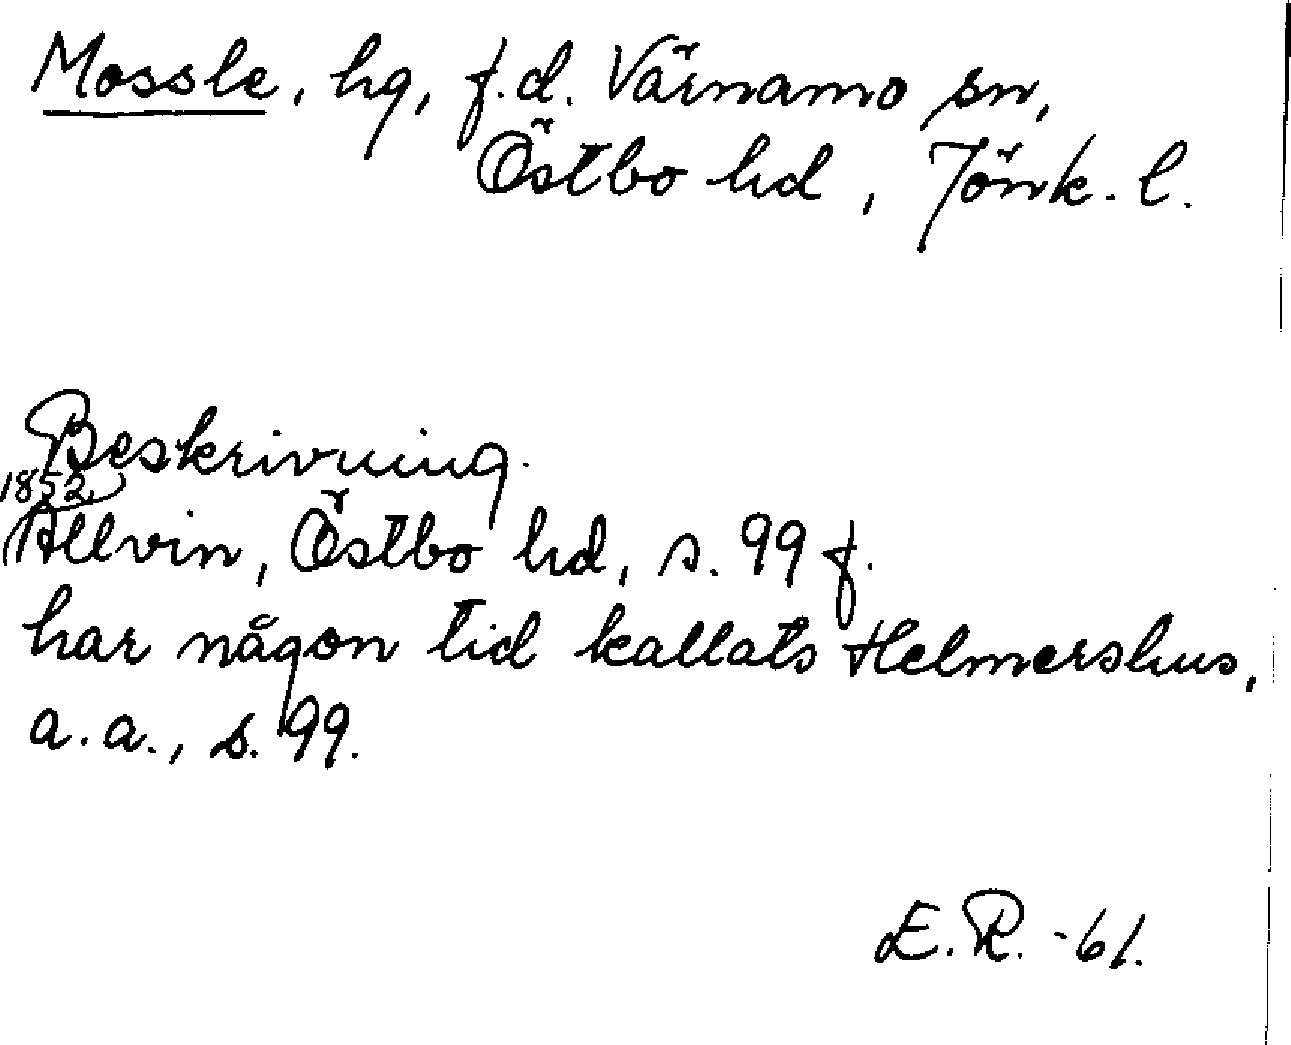 Mossle, hg, f.d. Värnamo sn,
Östbo hd, Jönk. l.
Beskrivning.
1852.
Allvin, Östbo hd, s. 99 f.
har någon tid kallats Helmershus,
a.a., s. 99.
E.R. -61.